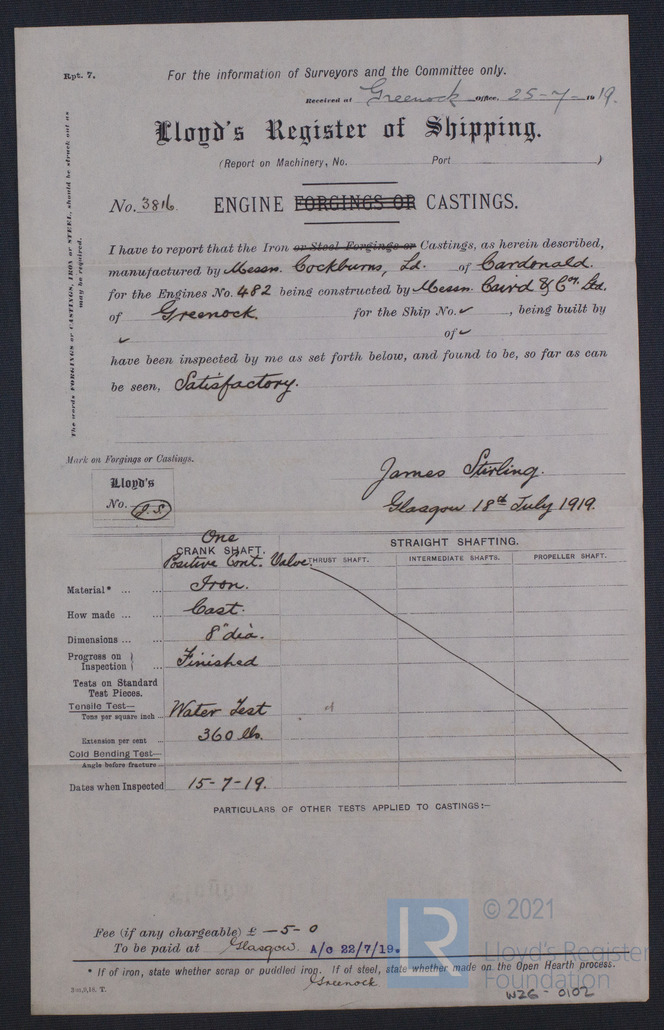 Rpt. 7.
For the information of Surveyors and the Committee only.
Received at Greenock Office, 25-7-1919.
Lloyd's Register of Shipping.
(Report on Machinery, No. Port )
No. 3816. ENGINE FORGINGS OR CASTINGS.
The words FORGINGS or CASTINGS, IRON or STEEL, should be struck out as
may be required.
I have to report that the Iron or Steel Forgings or Castings, as herein described,
manufactured by Messrs. Cockburns, Ld. of Cardonald.
for the Engines No. 482 being constructed by Messrs. Caird & Coy. Ltd.
of Greenock. for the Ship No. ✓ , being built by
✓ of ✓
have been inspected by me as set forth below, and found to be, so far as can
be seen, Satisfactory.
Mark on Forgings or Castings.
Lloyd's
No. J.S.
James Stirling.
Glasgow 18th July 1919.
One
CRANK SHAFT. STRAIGHT SHAFTING.
Positive Cont. Valve. THRUST SHAFT. INTERMEDIATE SHAFTS. PROPELLER SHAFT.
Material* ... ... Iron.
How made ... ... Cast.
Dimensions ... ... 8" dia.
Progress on
Inspection } ... Finished
Tests on Standard
Test Pieces.
Tensile Test—
Tons per square inch ... Water Test
Extension per cent ... 360 lbs.
Cold Bending Test—
Angle before fracture ...
Dates when Inspected 15-7-19.
PARTICULARS OF OTHER TESTS APPLIED TO CASTINGS:—
Fee (if any chargeable) £ —5-0
To be paid at Glasgow A/c 22/7/19.
* If of iron, state whether scrap or puddled iron. If of steel, state whether made on the Open Hearth process.
Greenock
W26-0102
LR
© 2021
Lloyd's Register
Foundation